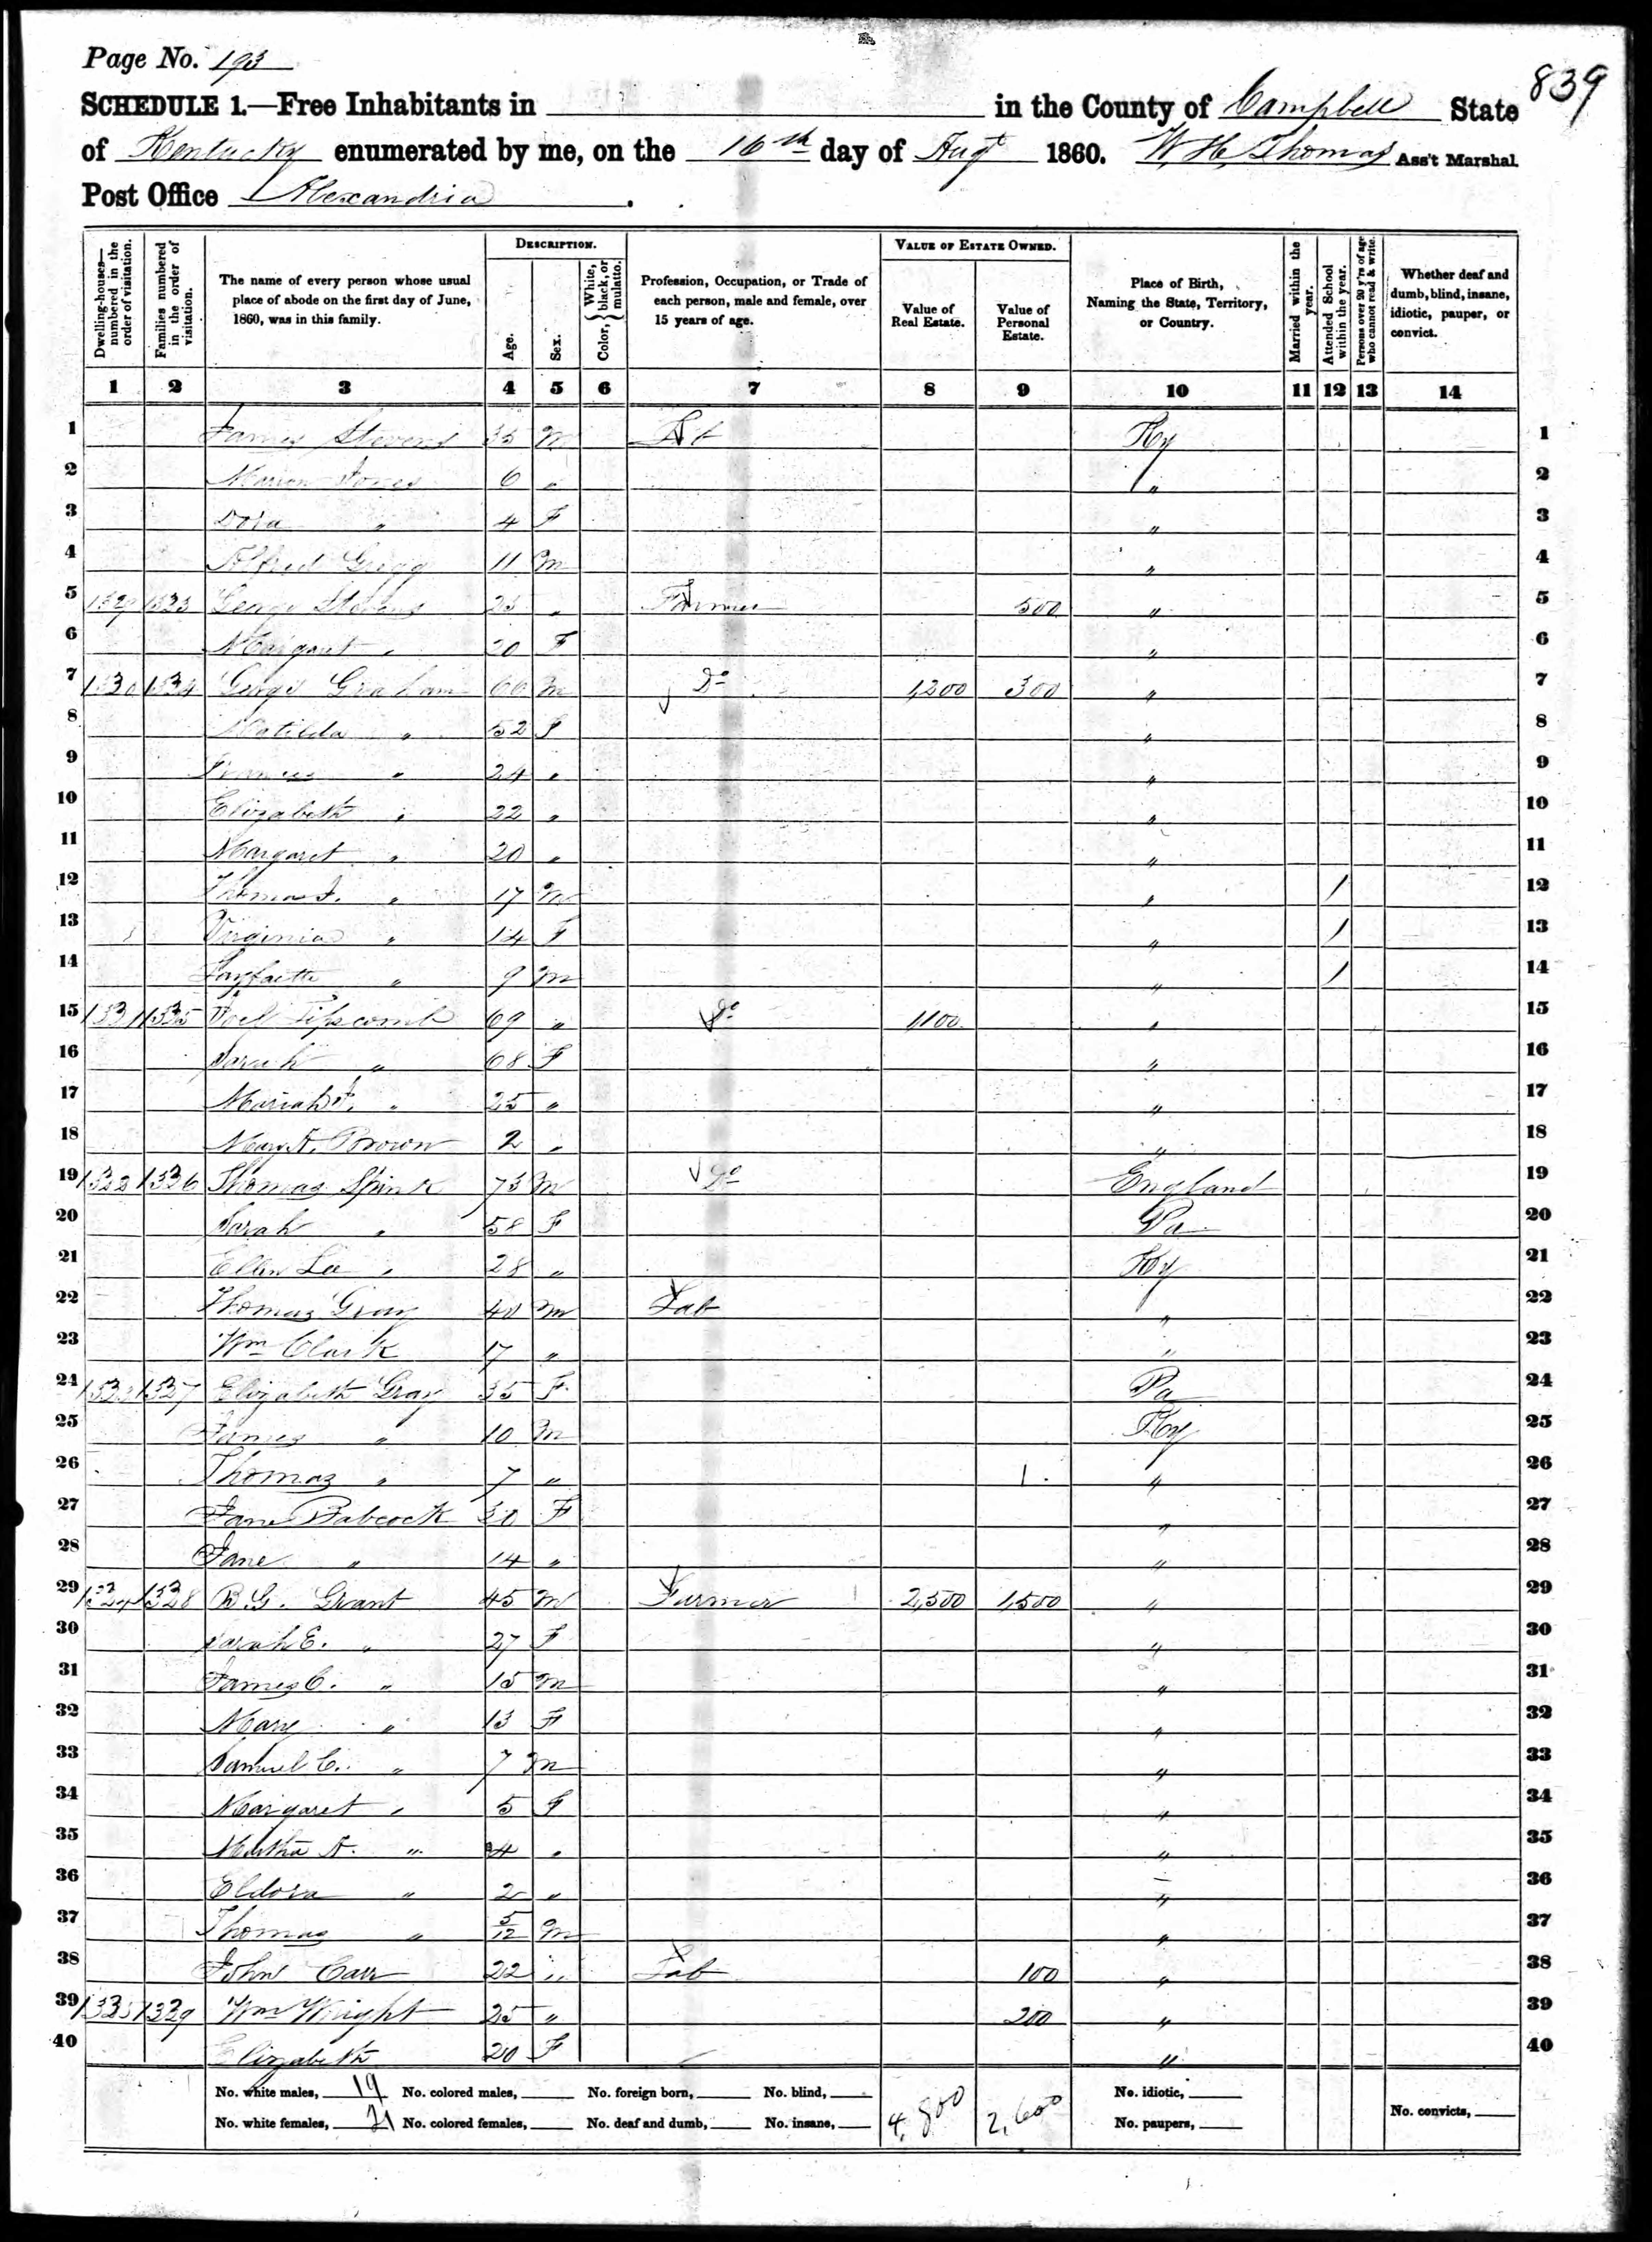 Page No. 193
839
SCHEDULE 1.—Free Inhabitants in in the County of Campbell State
of Kentucky enumerated by me, on the 16th day of Augt 1860. W H Thomas Ass't Marshal.
Post Office Alexandria.
Dwelling-houses—numbered in the order of visitation.
Families numbered in the order of visitation.
The name of every person whose usual place of abode on the first day of June, 1860, was in this family.
DESCRIPTION.
Age.
Sex.
Color, { White, black, or mulatto.
Profession, Occupation, or Trade of each person, male and female, over 15 years of age.
VALUE OF ESTATE OWNED.
Value of Real Estate.
Value of Personal Estate.
Place of Birth, Naming the State, Territory, or Country.
Married within the year.
Attended School within the year.
Persons over 20 y'rs of age who cannot read & write.
Whether deaf and dumb, blind, insane, idiotic, pauper, or convict.
1 2 3 4 5 6 7 8 9 10 11 12 13 14
1 James Stevens 35 m Ky 1
2 Marion Jones 6 " " 2
3 Dora " 4 F " 3
4 Alfred Gregg 11 m " 4
5 1329 1323 George Stevens 25 " Farmer 500 " 5
6 Margaret " 20 F " 6
7 1330 1324 George Graham 66 m Do 1,200 300 " 7
8 Matilda " 52 F " 8
9 Frances " 24 " " 9
10 Elizabeth " 22 " " 10
11 Margaret " 20 " " 11
12 Thomas J. " 17 m " / 12
13 Virginia " 14 F " / 13
14 Layfaette " 9 m " / 14
15 1331 1325 Joel Lipscomb 69 " Do 1,100 " 15
16 Sarah " 68 F " 16
17 Mariah " 25 " " 17
18 Mary A. Brown 2 " " 18
19 1332 1326 Thomas Spink 73 m Do England 19
20 Sarah " 58 F Pa 20
21 Ellen Lee " 28 " Ky 21
22 Thomas Gray 40 m Lab " 22
23 Wm Clark 17 " " 23
24 1333 1327 Elizabeth Gray 35 F Pa 24
25 James " 10 m Ky 25
26 Thomas " 7 " " 26
27 Jane Babcock 30 F " 27
28 Jane " 14 " " 28
29 1334 1328 B. G. Grant 45 m Farmer 2,500 1,500 " 29
30 Sarah E. " 27 F " 30
31 James C. " 15 m " 31
32 Mary " 13 F " 32
33 Samuel C. " 7 m " 33
34 Margaret " 5 F " 34
35 Martha A. " 4 " " 35
36 Eldora " 2 " " 36
37 Thomas " 5/12 m " 37
38 John Carr 22 " Lab 100 " 38
39 1335 1329 Wm Wright 25 " 200 " 39
40 Elizabeth 20 F " 40
No. white males, 19 No. colored males, No. foreign born, No. blind, 4,800 2,600 No. idiotic,
No. white females, 21 No. colored females, No. deaf and dumb, No. insane, No. paupers, No. convicts,